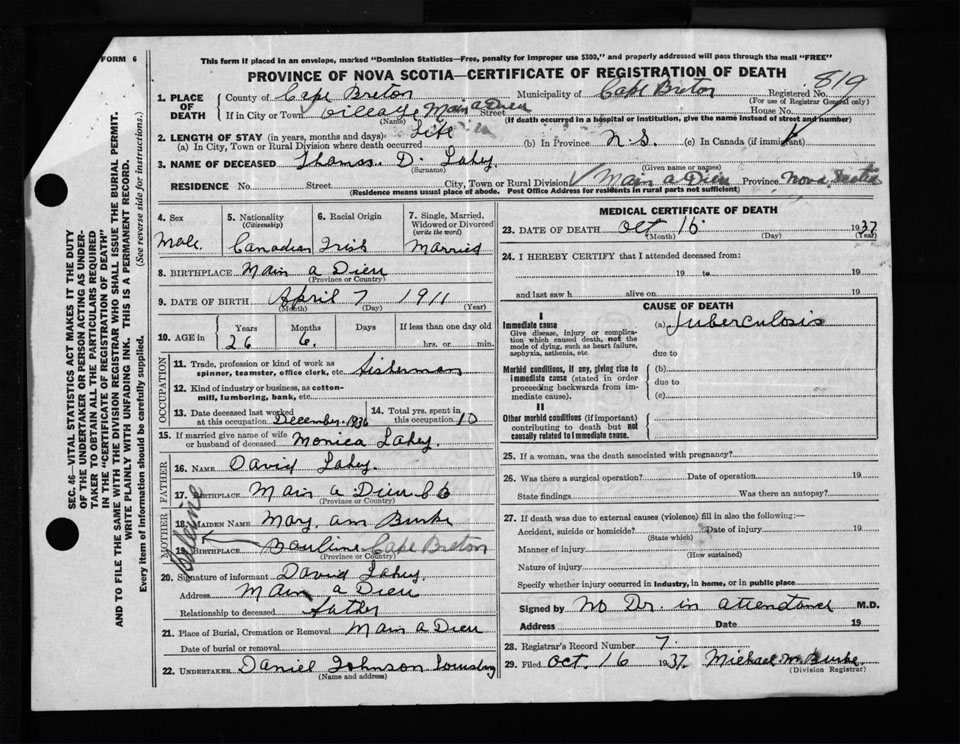 FORM 6
This form if placed in an envelope, marked "Dominion Statistics—Free, penalty for improper use $300," and properly addressed will pass through the mail "FREE"
PROVINCE OF NOVA SCOTIA—CERTIFICATE OF REGISTRATION OF DEATH
819
1. PLACE OF DEATH County of Cape Breton Municipality of Cape Breton Registered No.
(For use of Registrar General only)
If in City or Town Village Main a Dieu Street House No.
(Name) (If death occurred in a hospital or institution, give the name instead of street and number)
2. LENGTH OF STAY (in years, months and days)
(a) In City, Town or Rural Division where death occurred Life (b) In Province N.S. (c) In Canada (if immigrant)
3. NAME OF DECEASED Thomas D. Lahey
(Surname) (Given name or names)
RESIDENCE No. Street City, Town or Rural Division Main a Dieu Province Nova Scotia
(Residence means usual place of abode. Post Office Address for residents in rural parts not sufficient)
4. Sex 5. Nationality (Citizenship) 6. Racial Origin 7. Single, Married, Widowed or Divorced (write the word)
Male Canadian Irish Married
8. BIRTHPLACE Main a Dieu
(Province or Country)
9. DATE OF BIRTH April 7 1911
(Month) (Day) (Year)
10. AGE in Years Months Days If less than one day old
26 6. hrs. or min.
OCCUPATION
11. Trade, profession or kind of work as spinner, teamster, office clerk, etc. fisherman
12. Kind of industry or business, as cotton-mill, lumbering, bank, etc.
13. Date deceased last worked at this occupation December 1936 14. Total yrs. spent in this occupation 10
15. If married give name of wife or husband of deceased Monica Lahey
FATHER
16. NAME David Lahey.
17. BIRTHPLACE Main a Dieu C B
(Province or Country)
MOTHER
18. MAIDEN NAME Mary ann Burke
19. BIRTHPLACE Bauline Cape Breton
(Province or Country)
20. Signature of informant David Lahey.
Address Main a Dieu
Relationship to deceased father
21. Place of Burial, Cremation or Removal Main a Dieu
Date of burial or removal
22. UNDERTAKER Daniel Johnson Louisburg
(Name and address)
MEDICAL CERTIFICATE OF DEATH
23. DATE OF DEATH Oct 15 1937
(Month) (Day) (Year)
24. I HEREBY CERTIFY that I attended deceased from:
19 to 19
and last saw h alive on 19
CAUSE OF DEATH
I
Immediate cause (a) Tuberculosis
Give disease, injury or complication which caused death, not the mode of dying, such as heart failure, asphyxia, asthenia, etc.
due to
Morbid conditions, if any, giving rise to immediate cause (stated in order proceeding backwards from immediate cause).
(b)
due to
(c)
II
Other morbid conditions (if important) contributing to death but not causally related to immediate cause.
25. If a woman, was the death associated with pregnancy?
26. Was there a surgical operation? Date of operation 19
State findings Was there an autopsy?
27. If death was due to external causes (violence) fill in also the following:—
Accident, suicide or homicide? Date of injury 19
(State which)
Manner of injury
(How sustained)
Nature of injury
Specify whether injury occurred in Industry, in home, or in public place
Signed by No Dr. in attendance M.D.
Address Date 19
28. Registrar's Record Number 7.
29. Filed Oct. 16 1937 Michael M. Burke.
(Division Registrar)
SEC. 46—VITAL STATISTICS ACT MAKES IT THE DUTY
OF THE UNDERTAKER OR PERSON ACTING AS UNDER-
TAKER TO OBTAIN ALL THE PARTICULARS REQUIRED
IN THE "CERTIFICATE OF REGISTRATION OF DEATH"
AND TO FILE THE SAME WITH THE DIVISION REGISTRAR WHO SHALL ISSUE THE BURIAL PERMIT.
WRITE PLAINLY WITH UNFADING INK. THIS IS A PERMANENT RECORD.
Every item of information should be carefully supplied. (See reverse side for instructions.)